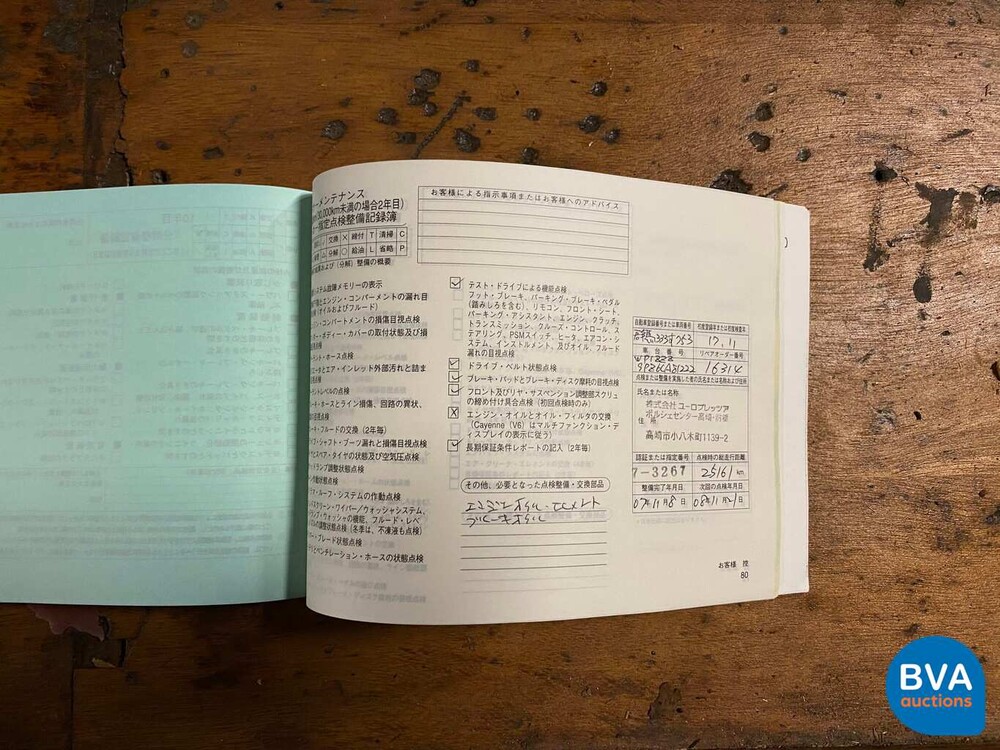 ーメンテナンス
30,000km未満の場合2年目)
指定点検整備記録簿
交換 X 締付 T 清掃 C
分解 ○ 給油 L 省略 P
および(分解)整備の概要
システム故障メモリーの表示
とエンジン・コンパートメントの漏れ目
(オイルおよびフルード)
ンジン・コンパートメントの損傷目視点検
ーボディー・カバーの取付状態及び損
ホース点検
ータとエア・インレット外部汚れと詰ま
レベルの点検
ーキ・ホースとライン損傷、回路の異状、
ーキ・フルードの交換 (2年毎)
シャフト・ブーツ漏れと損傷目視点検
スペア・タイヤの状態及び空気圧点検
ランプ調整状態点検
作動状態点検
ルーフ・システムの作動点検
スクリーン・ワイパー/ウォッシャシステム、
ランプ・ウォッシャの機能、フルード・レベ
ルの調整状態点検 (冬季は、不凍液も点検)
ブレード状態点検
とベンチレーション・ホースの状態点検
お客様による指示事項またはお客様へのアドバイス
テスト・ドライブによる機能点検
フット・ブレーキ、パーキング・ブレーキ・ペダル
(踏みしろを含む)、リモコン、フロント・シート、
パーキング・アシスタント、エンジン、クラッチ、
トランスミッション、クルーズ・コントロール、ス
テアリング、PSMスイッチ、ヒータ、エアコン・シ
ステム、インストルメント、及びオイル、フルード
漏れの目視点検
ドライブ・ベルト状態点検
ブレーキ・パッドとブレーキ・ディスク摩耗の目視点検
フロント及びリヤ・サスペンション調整部スクリュ
の締め付け具合点検 (初回点検時のみ)
X エンジン・オイルとオイル・フィルタの交換
(Cayenne (V6) はマルチファンクション・デ
ィスプレイの表示に従う)
長期保証条件レポートの記入 (2年毎)
その他、必要となった点検整備・交換部品
エンジンオイル・エレメント
ブレーキオイル
自動車登録番号または車両番号
17.11
車台番号 リペアオーダー番号
WP1ZZZ
9PZ6LA81222 16314
点検または整備を実施した者の氏名または名称および住所
氏名または名称
株式会社 ユーロプレッツァ
ポルシェセンター高崎・前橋
住所
高崎市小八木町1139-2
認証または指定番号 点検時の総走行距離
7-3267 25161 km
整備完了年月日 次回の点検年月日
07年11月8日 08年11月21日
お客様 控
80
BVA
auctions